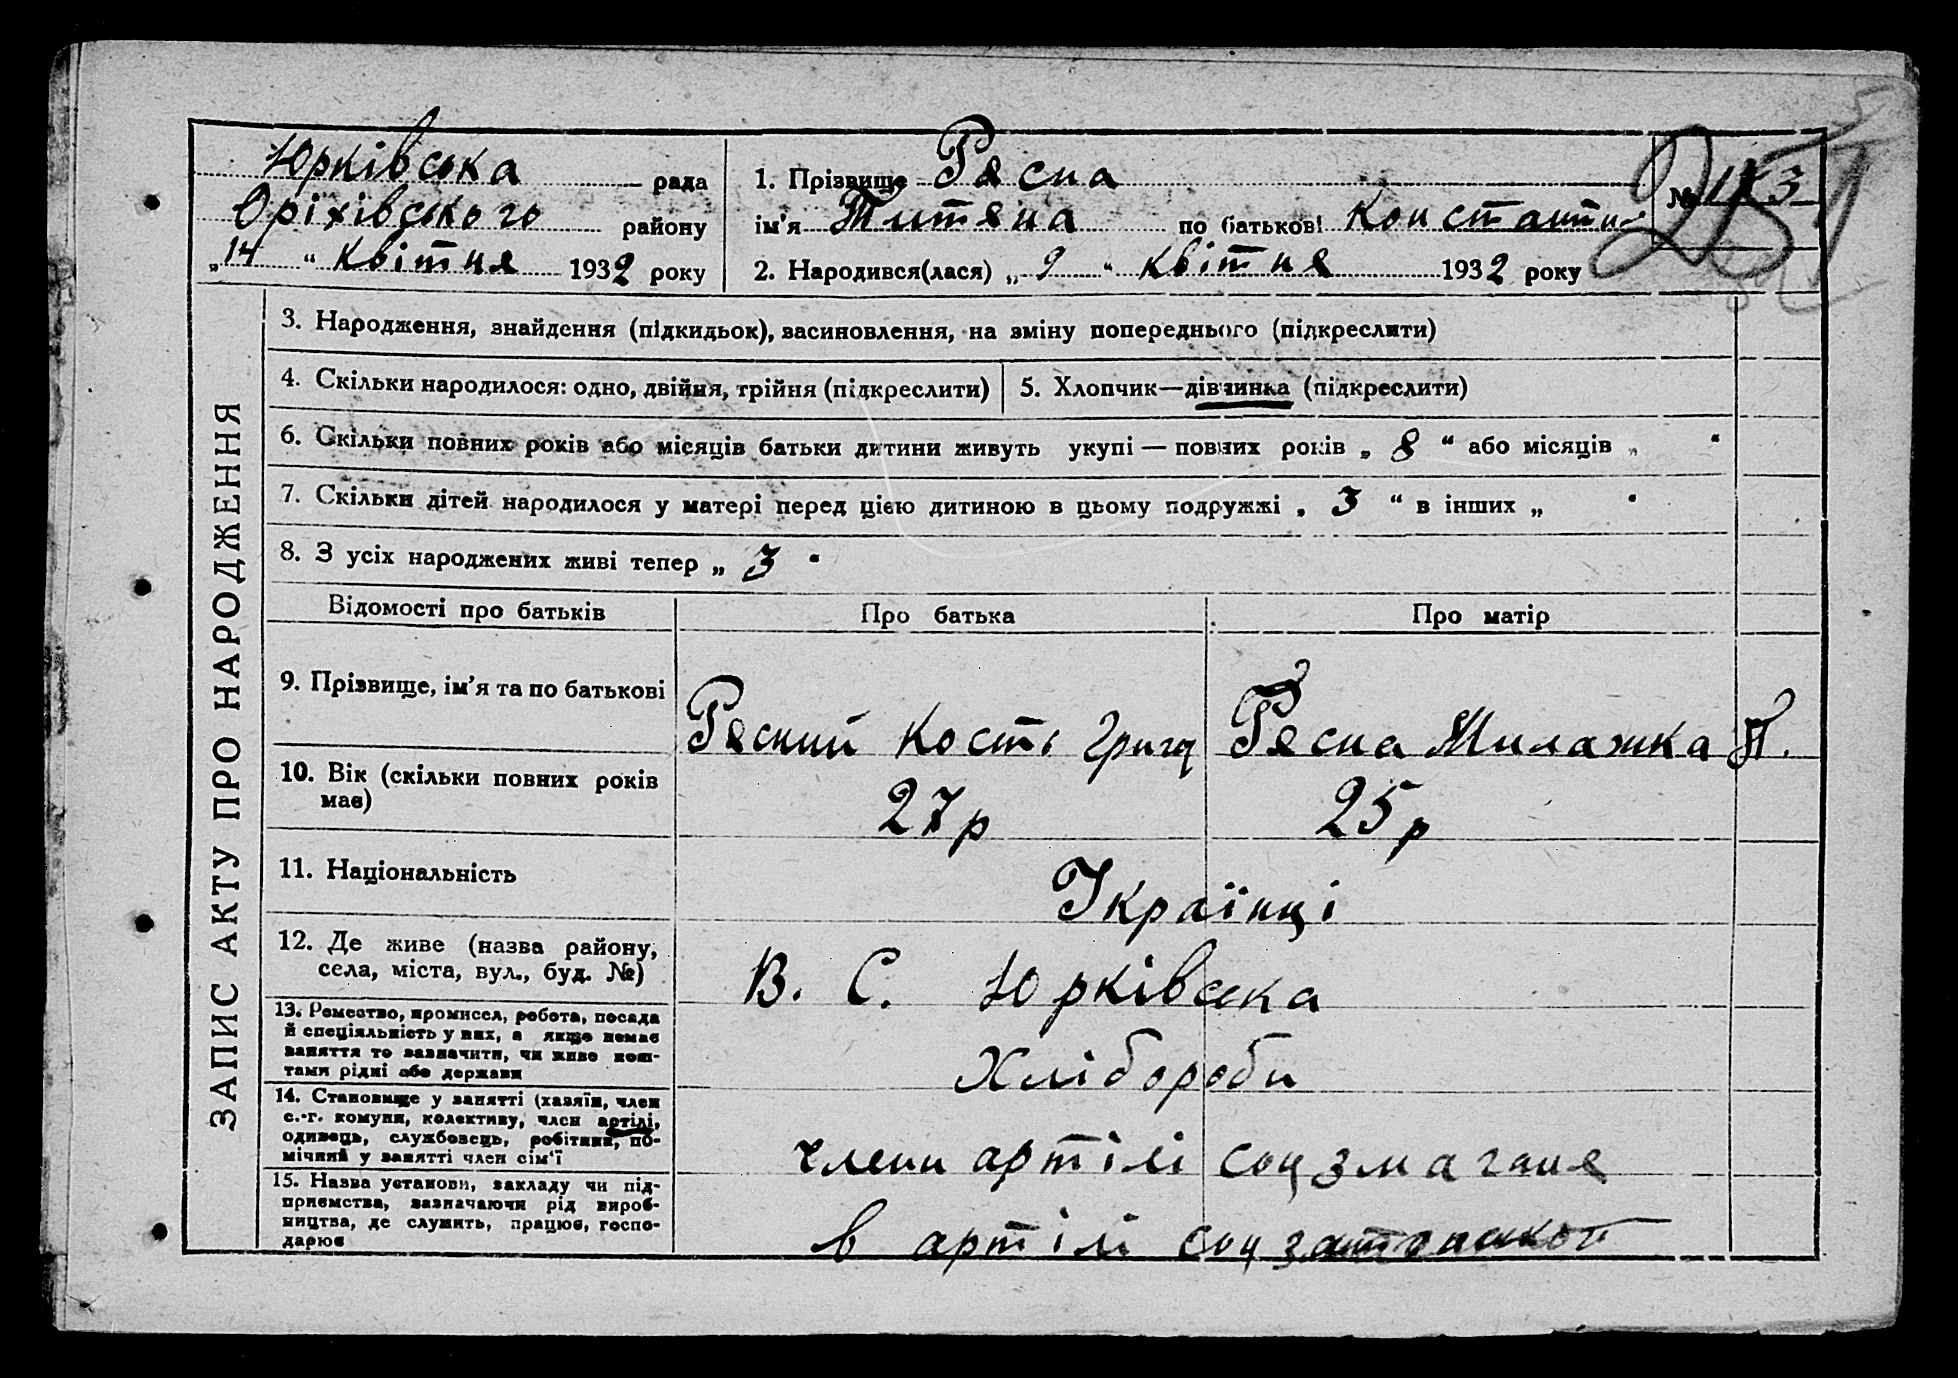 Юрківська рада
Оріхівського району
„14“ Квітня 1932 року
1. Прізвище Рясна
ім'я Титяна по батькові Константин
2. Народився(лася) „9“ Квітня 1932 року
№
ЗАПИС АКТУ ПРО НАРОДЖЕННЯ
3. Народження, знайдення (підкидьок), васиновлення, на зміну попереднього (підкреслити)
4. Скільки народилося: одно, двійня, трійня (підкреслити)
5. Хлопчик—дівчинка (підкреслити)
6. Скільки повних років або місяців батьки дитини живуть укупі — повних років „8“ або місяців „ “
7. Скільки дітей народилося у матері перед цією дитиною в цьому подружжі „3“ в інших „ “
8. З усіх народжених живі тепер „3“
Відомості про батьків
Про батька
Про матір
9. Прізвище, ім'я та по батькові
Рясний Кость Григо
Рясна Милажка П.
10. Вік (скільки повних років
має)
27р
25р
11. Національність
Українці
12. Де живе (назва району,
села, міста, вул., буд. №)
В. С. Юрківська
13. Ремество, промисел, робота, посада
й спеціяльність у них, а якщо немає
заняття то зазначити, чи живе кош-
тами рідні або держави
Хлібороби
14. Становище у занятті (хазяїн, член
с.-г. комуни, колективу, член артілі,
одинець, службовець, робітник, по-
мічний у занятті член сім'ї
члени артілі соцзмаганя
15. Назва установи, закладу чи під-
приємства, зазначаючи рід вироб-
ництва, де служить, працює, госпо-
дарює
в артілі